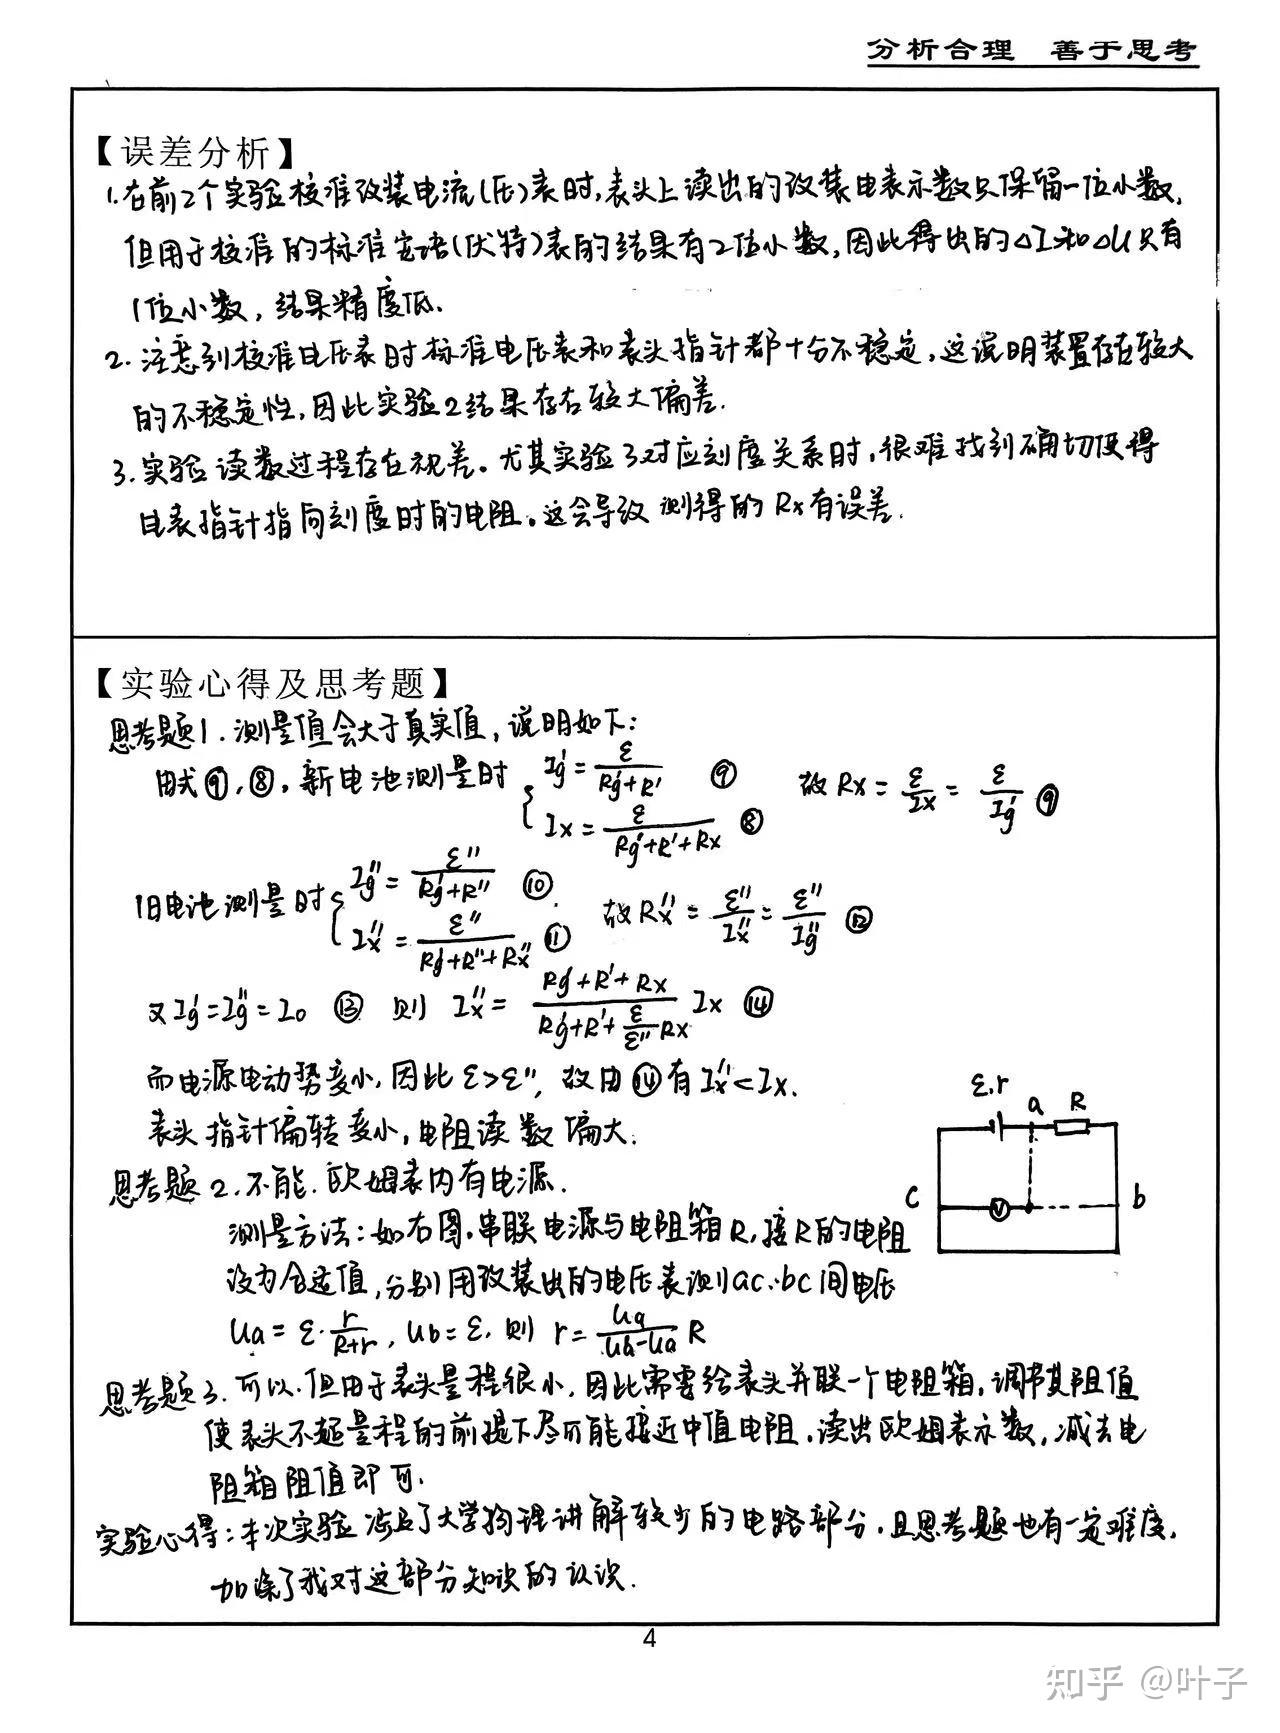 分析合理 善于思考
【误差分析】
1.在前2个实验校准改装电流(压)表时,表头上读出的改装电表示数只保留一位小数,
但用于校准的标准安培(伏特)表的结果有2位小数,因此得出的△I和△U只有
1位小数,结果精度低.
2.注意到校准电压表时标准电压表和表头指针都十分不稳定,这说明装置存在较大
的不稳定性,因此实验2结果存在较大偏差.
3.实验读数过程存在视差。尤其实验3对应刻度关系时,很难找到确切使得
电表指针指向刻度时的电阻。这会导致测得的Rx有误差.
【实验心得及思考题】
思考题1.测量值会大于真实值,说明如下:
由式⑨,⑧,新电池测量时 { Ig' = ε/(Rg'+R') ⑨ 故Rx = ε/Ix = ε/Ig' ⑨
Ix = ε/(Rg'+R'+Rx) ⑧
旧电池测量时 { Ig'' = ε''/(Rg'+R'') ⑩ 故Rx'' = ε''/Ix'' = ε''/Ig'' ⑫
Ix'' = ε''/(Rg'+R''+Rx'') ⑪
又Ig'=Ig''=I0 ⑬ 则 Ix'' = (Rg'+R'+Rx)/(Rg'+R'+(ε/ε'')Rx) Ix ⑭
而电源电动势变小,因此ε>ε'',故由⑭有Ix''<Ix.
表头指针偏转变小,电阻读数偏大.
ε.r
a R
c V b
思考题2.不能.欧姆表内有电源.
测量方法:如右图.串联电源与电阻箱R,接R的电阻
设为合适值,分别用改装出的电压表测ac.bc间电压
Ua = ε·r/(R+r), Ub = ε. 则 r = Ua/(Ub-Ua) R
思考题3.可以.但由于表头量程很小,因此需要给表头并联一个电阻箱,调节其阻值
使表头不超量程的前提下尽可能接近中值电阻.读出欧姆表示数,减去电
阻箱阻值即可.
实验心得:本次实验涉及了大学物理讲解较少的电路部分.且思考题也有一定难度.
加深了我对这部分知识的认识.
4
知乎 @叶子